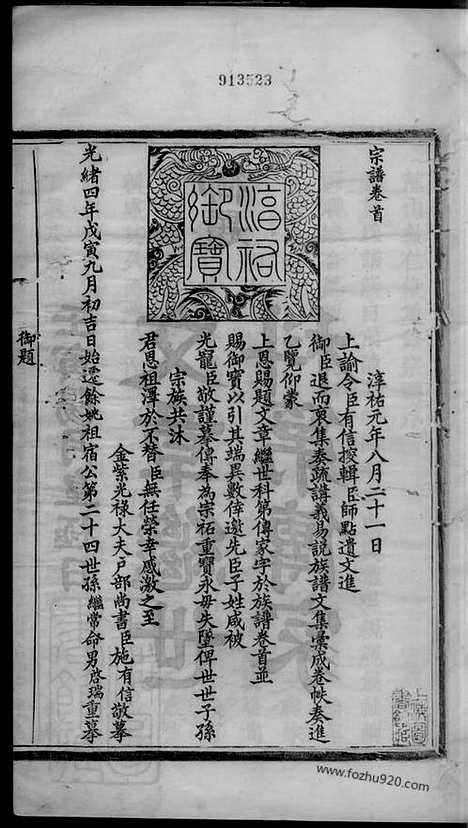 913523
宗譜卷首
淳祐御寶
淳祐元年八月二十一日
上諭令臣有信搜輯臣師點遺文進
御臣退而裒集奏疏講義易說族譜文集彙成卷帙奏進
乙覽仰蒙
上恩賜題文章繼世科第傳家字於族譜卷首並
賜御寶以引其端異數倖邀先臣子姓咸被
光寵臣敬謹摹傳奉為宗祏重寶永毋失墜俾世世子孫
宗族共沐
君恩祖澤於不替臣無任榮幸感激之至
金紫光祿大夫戶部尚書臣施有信敬摹
光緒四年戊寅九月初吉日始遷餘姚祖宿公第二十四世孫繼常命男啓瑞重摹
御題
www.fozhu920.com